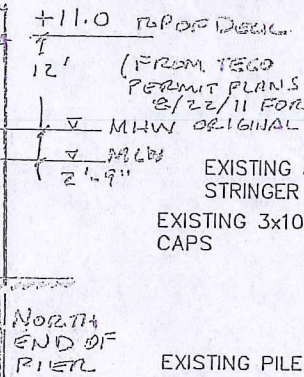 +11.0 TOP OF DECK
12'
(FROM TECO
PERMIT PLANS
8/22/11 FOR
MHW ORIGINAL
MLW
2'-9"
EXISTING
STRINGER
EXISTING 3x10
CAPS
NORTH
END OF
PIER
EXISTING PILE